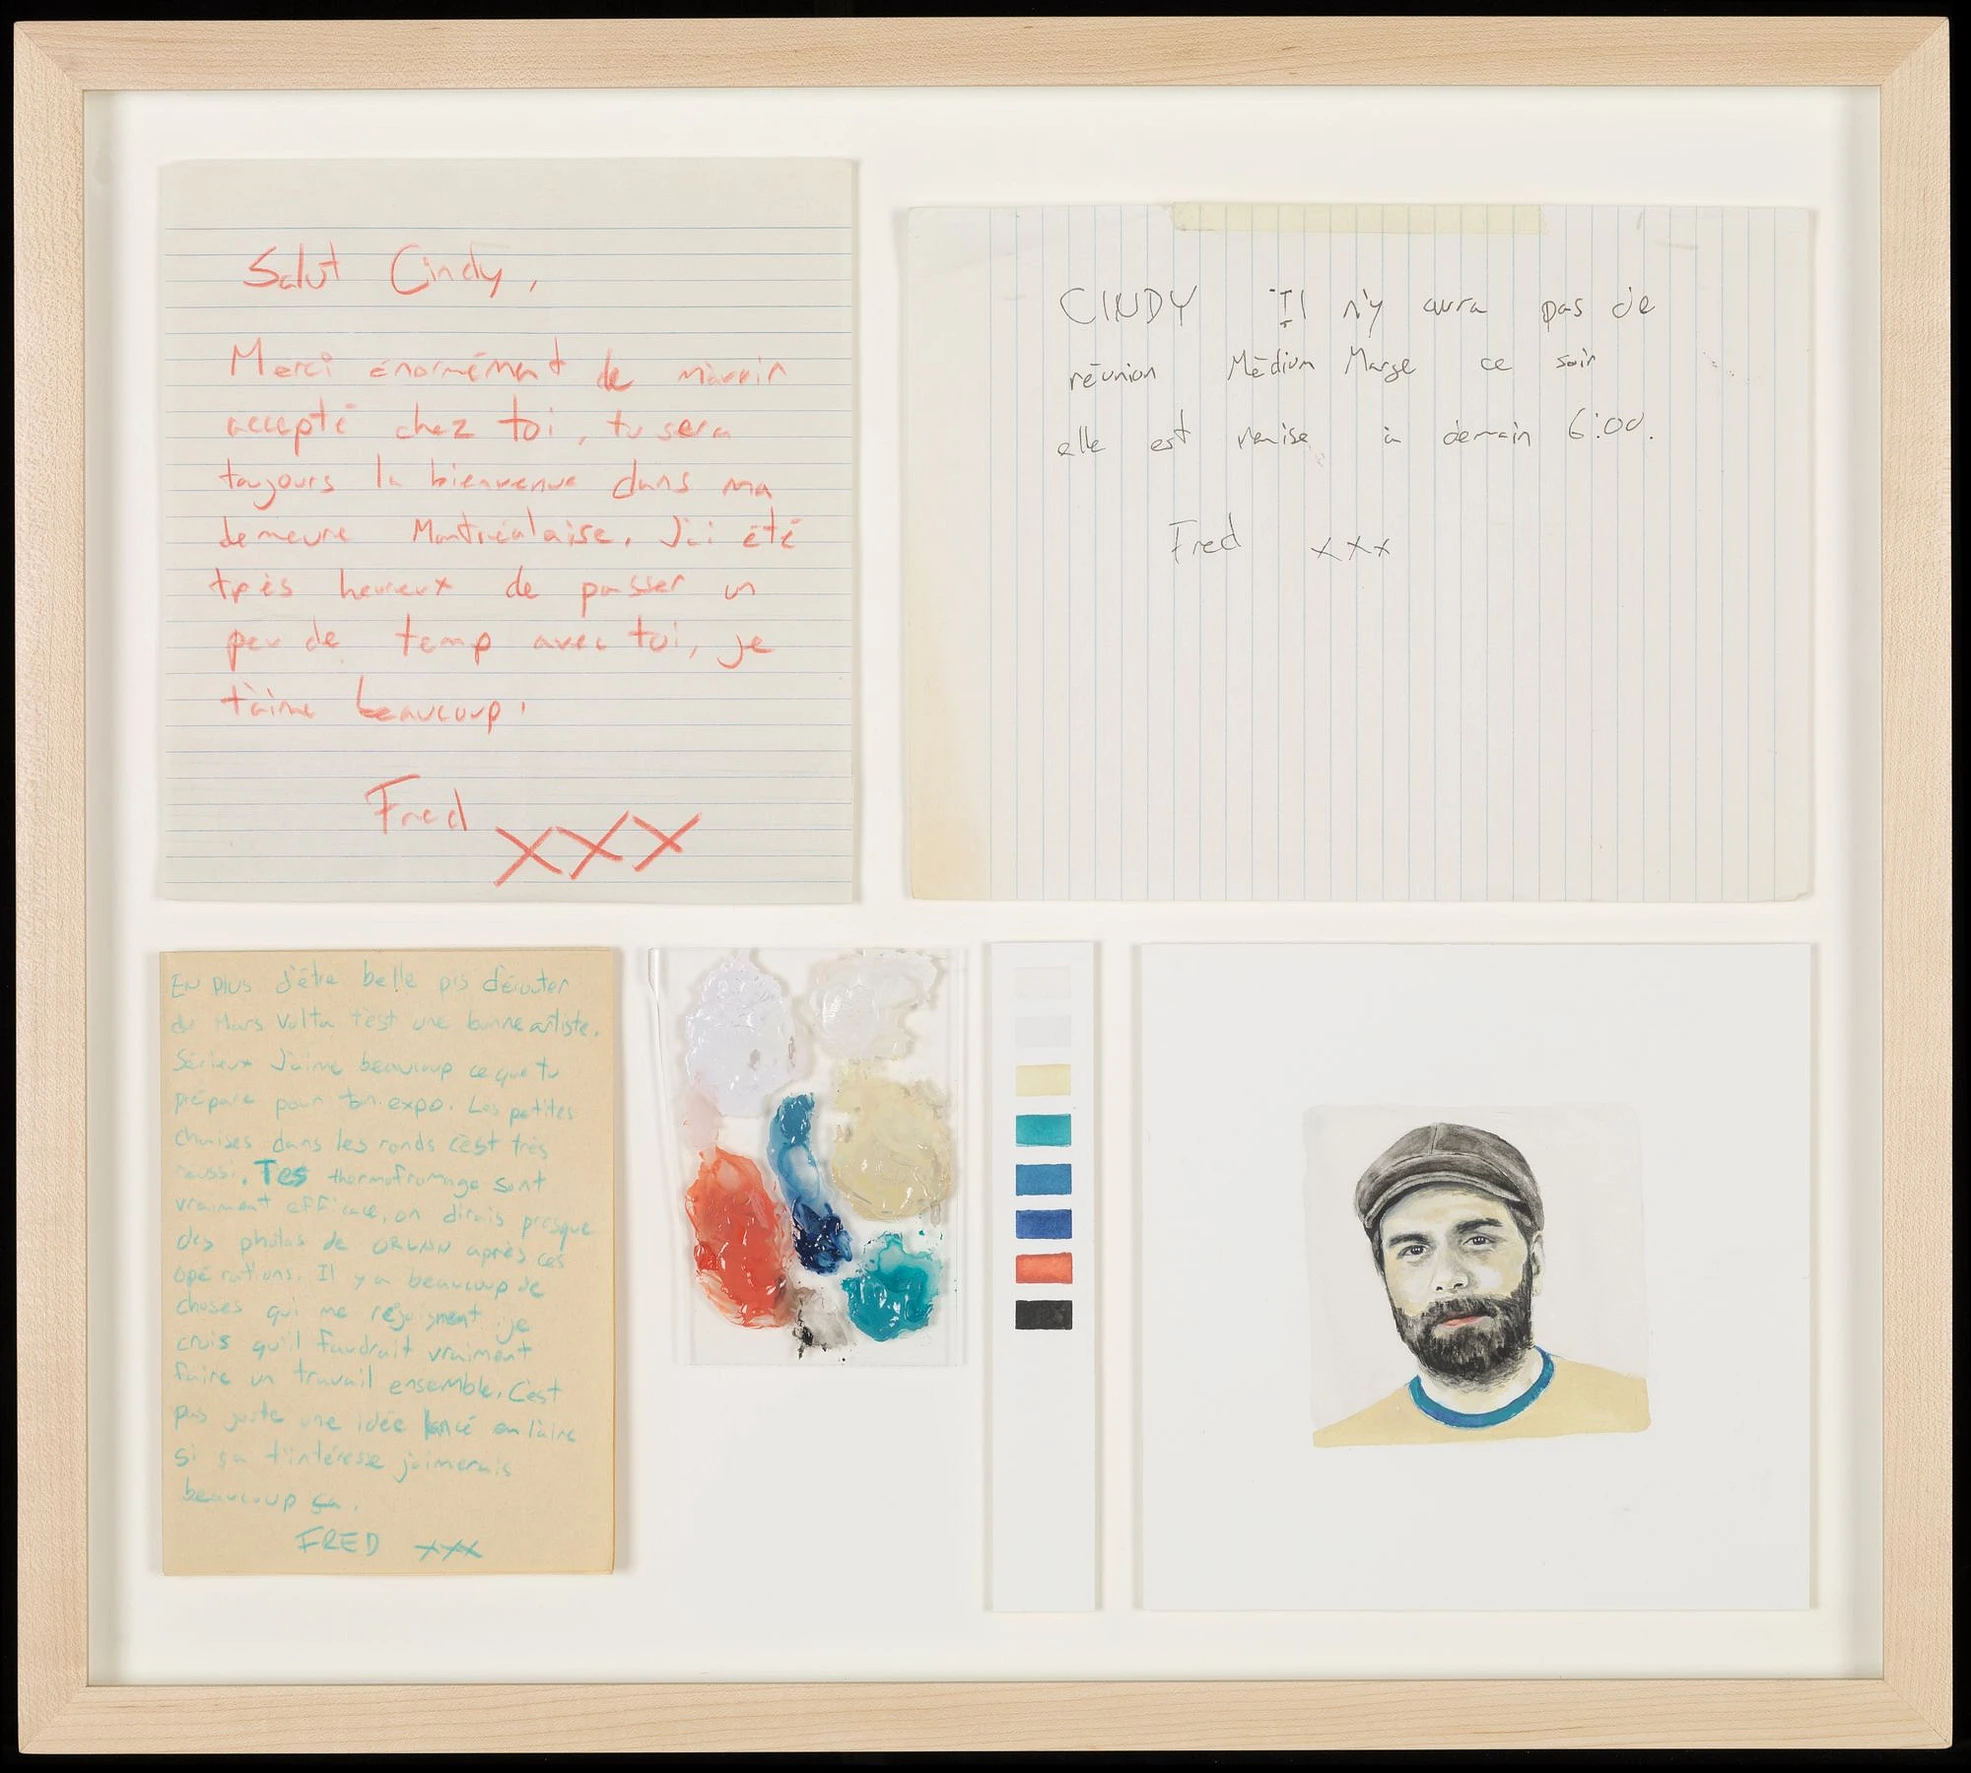 Salut Cindy,
Merci énormément de m'avoir
accepté chez toi, tu sera
toujours la bienvenue dans ma
demeure Montréalaise. J'ai été
très heureux de passer un
peu de temp avec toi, je
t'aime beaucoup.
Fred xxx
CINDY Il n'y aura pas de
réunion Médium Marge ce soir
elle est remise à demain 6:00.
Fred xxx
EN plus d'être belle pis d'écouter
du Mars Volta t'est une bonne artiste.
Sérieux J'aime beaucoup ce que tu
prépare pour ton expo. Les petites
chaises dans les ronds c'est très
réussi. Tes thermofromage sont
vraiment efficace, on dirais presque
des photos de ORLAN après ces
opérations. Il y a beaucoup de
choses qui me rejoignent je
crois qu'il faudrait vraiment
faire un travail ensemble. C'est
pas juste une idée lancé en l'aire
si ça t'intéresse j'aimerais
beaucoup ça.
FRED xxx